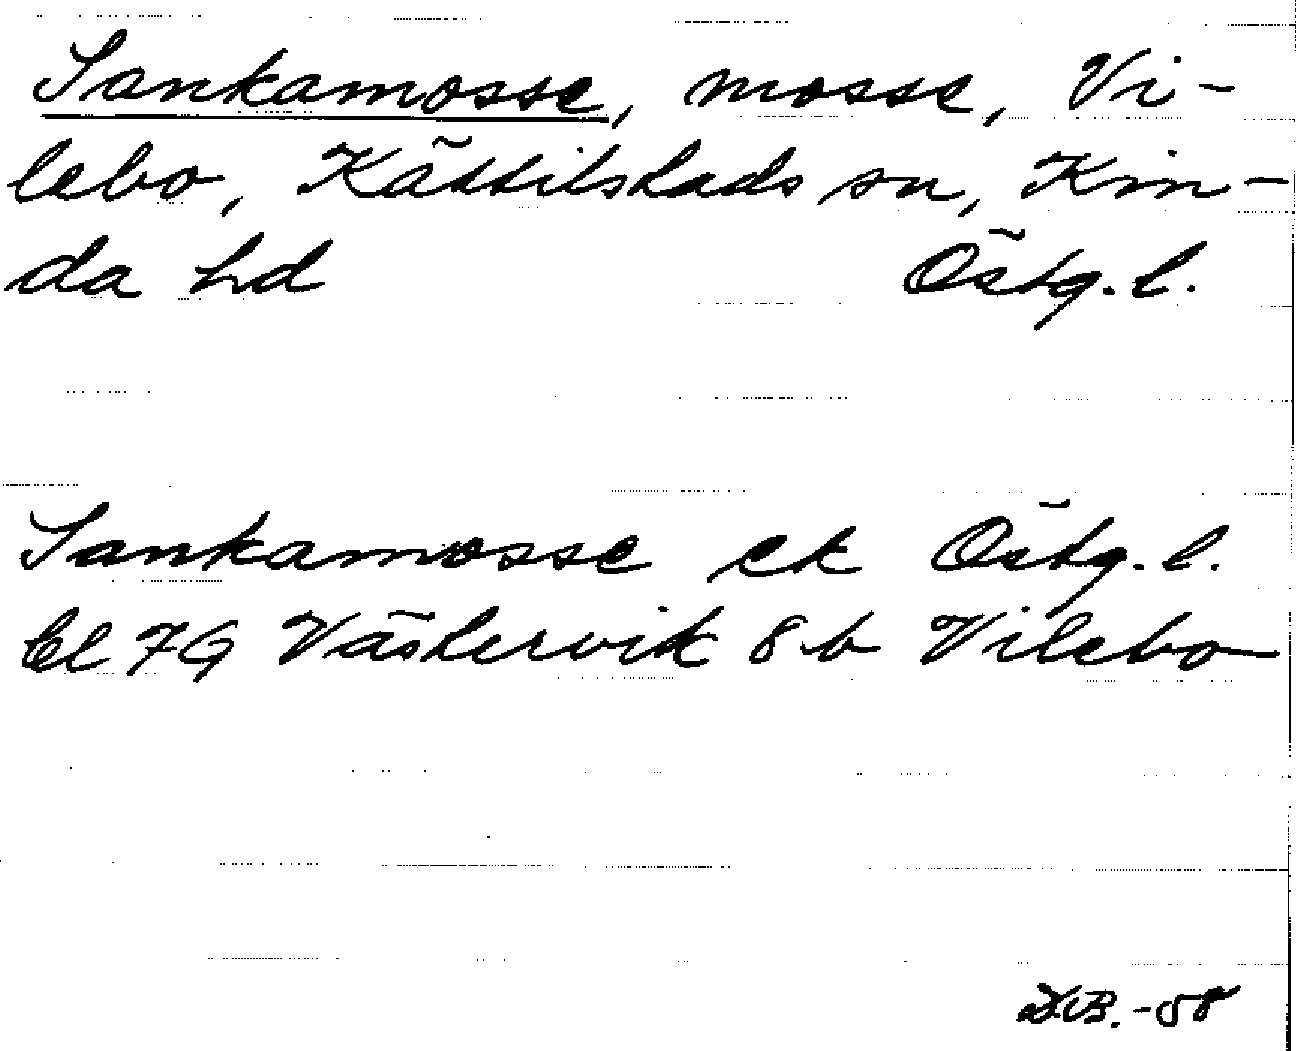 Sankamosse, mosse, Vi-
lebo, Kättilstads sn, Kin-
da hd Östg. l.
Sankamosse ek Östg. l.
bl 7G Västervik 8 b Vilebo
-58